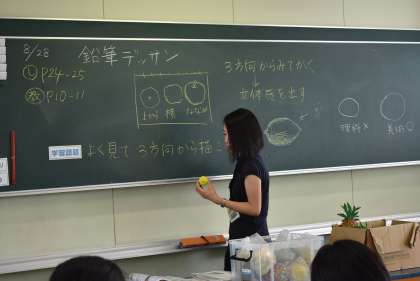 8/28 鉛筆デッサン
P24-25
P10-11
上から 横 ななめ
3方向からみてかく
↓
立体感を出す
理科× 美術○
学習課題 よく見て 3方向から描こ